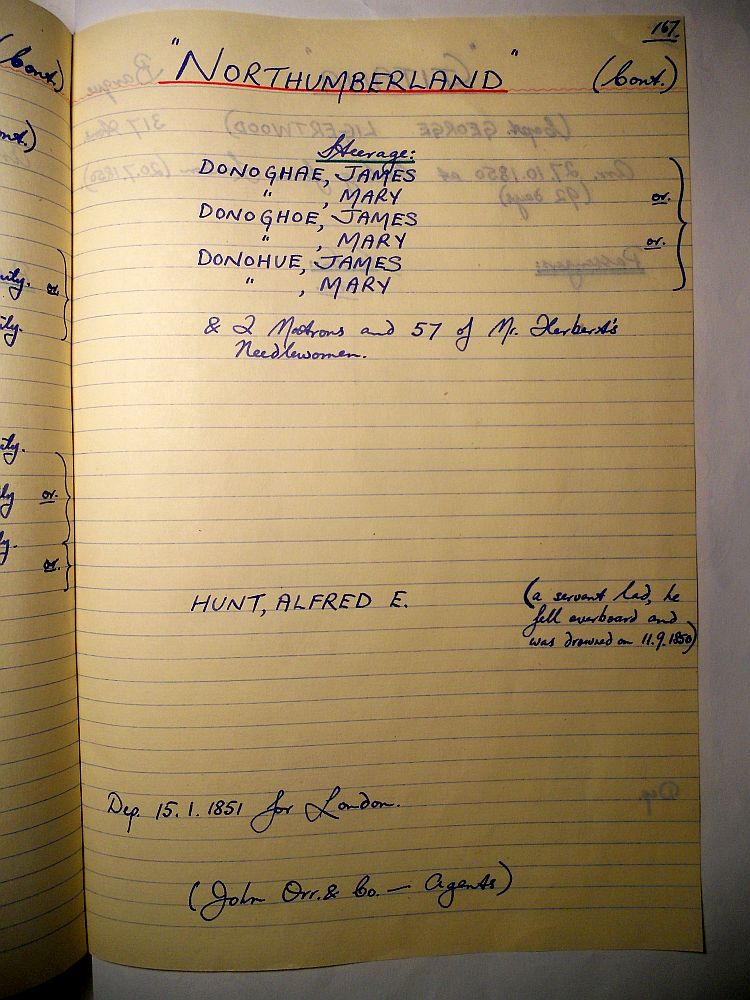 167.
"NORTHUMBERLAND" (Cont.)
Steerage:
DONOGHAE, JAMES
" , MARY or.
DONOGHOE, JAMES
" , MARY or.
DONOHUE, JAMES
" , MARY
& 2 Matrons and 57 of Mr. Herbert's
Needlewomen.
HUNT, ALFRED E. (a servant lad, he
fell overboard and
was drowned on 11.9.1850)
Dep. 15.1.1851 for London.
(John Orr. & Co. — Agents)